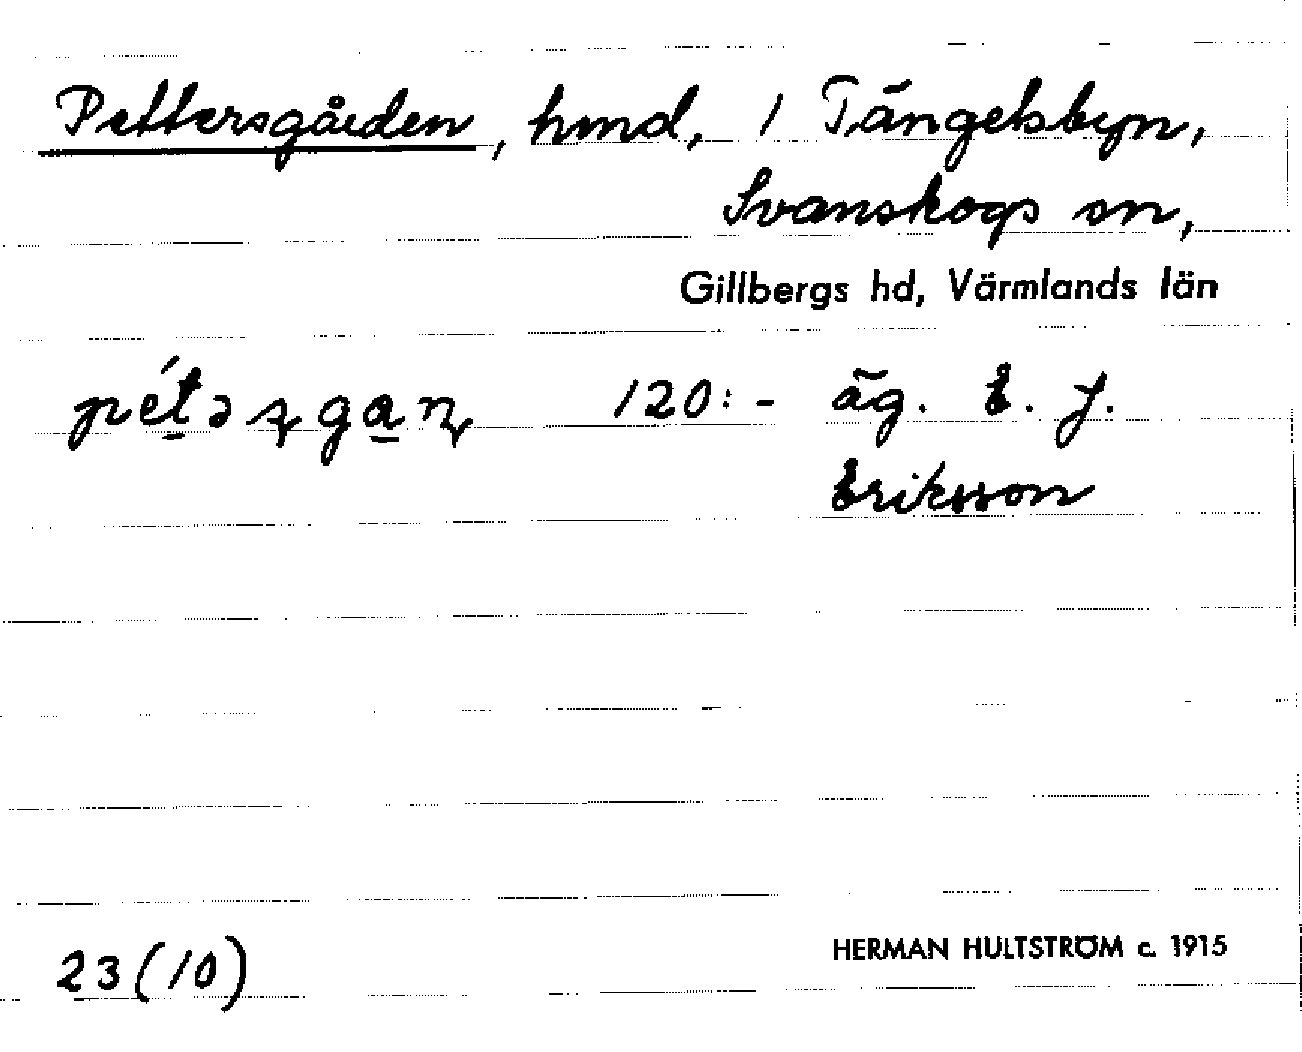 Pettersgården, hmd, 1 Tängelsbyn,
Svanskogs sn,
Gillbergs hd, Värmlands län
pét̲əʂga̲ɳ 120:- äg. E. J.
Eriksson
23(10)
HERMAN HULTSTRÖM c. 1915